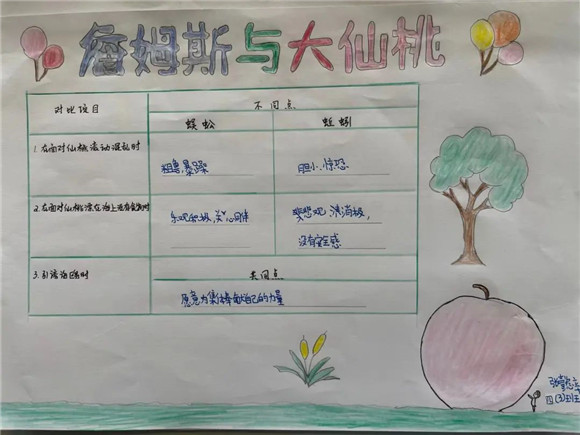 詹姆斯与大仙桃
对比项目
不同点
蜈蚣
蚯蚓
1.在面对仙桃滚动混乱时
粗鲁、暴躁
胆小、惊恐
2.在面对仙桃漂在海上没有食物时
乐观积极,关心同伴
悲观、消极,
没有安全感
3.引诱海鸥时
共同点
愿意为集体奉献自己的力量
四(3)班